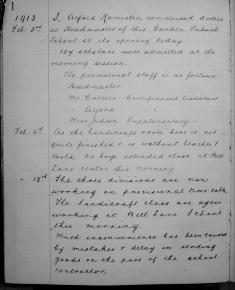 1
1913
Feb. 3rd I, Alfred Ramester, commenced duties
as Headmaster of this Garden Suburb
School at its opening today.
104 scholars were admitted at the
morning session.
The provisional staff is as follows:
Headmaster
Mr Certificated Assistant
- Alford
Miss Judson Supplementary -
Feb. 6th As the handicraft room here is not
quite finished & is without teacher &
tools, the boys attended class at Bell
Lane centre this morning
- 13th The three divisions are now
working on provisional time table.
The handicraft class are again
working at Bell Lane School
this morning.
Much inconvenience has been caused
by mistakes & delay in sending
goods on the part of the school
contractor.